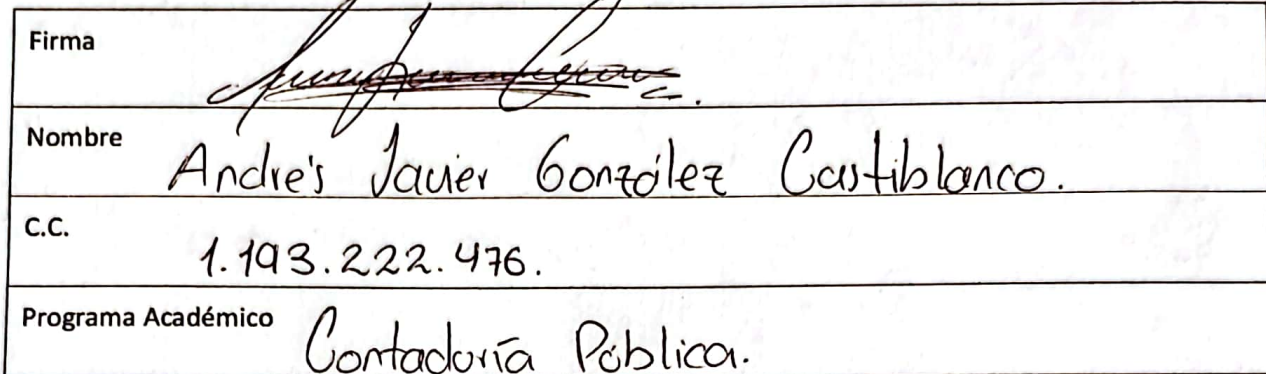 Firma
Nombre Andrés Javier González Castiblanco.
C.C. 1.193.222.476.
Programa Académico Contaduría Pública.